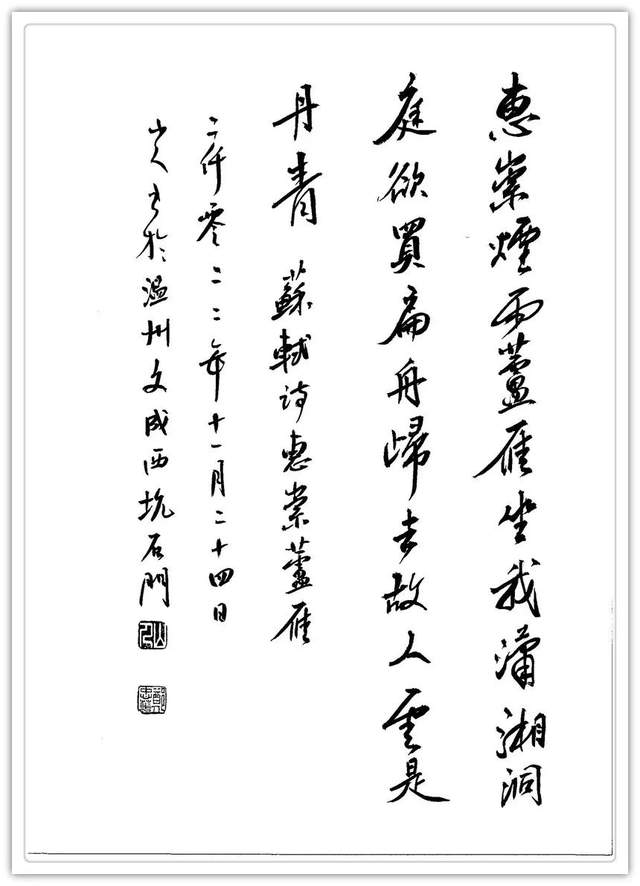 惠崇煙雨蘆雁坐我瀟湘洞
庭欲買扁舟歸去故人雲是
丹青 蘇軾诗惠崇蘆雁
二仟零二二年十一月二十四日
山人书於温州文成西坑石門